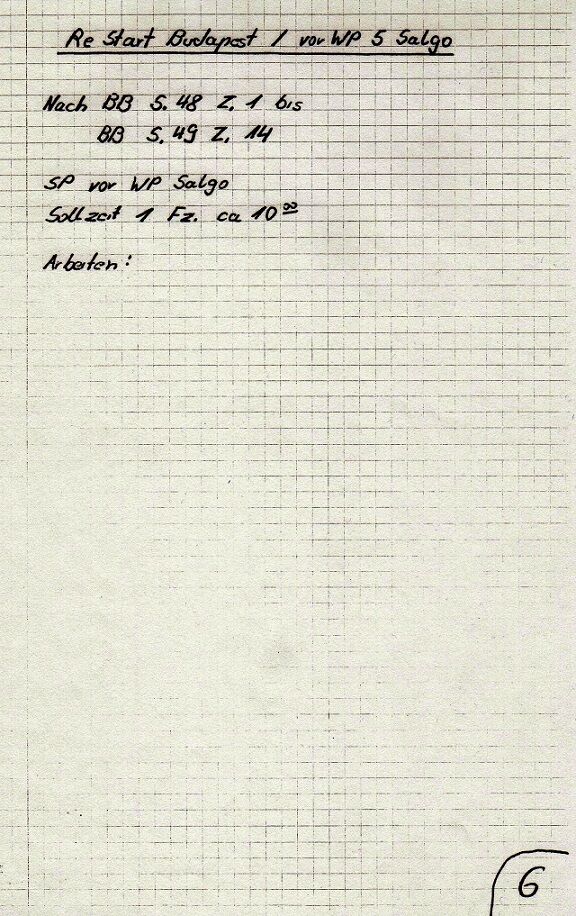 Re Start Budapest / vor WP 5 Salgo
Nach BB S. 48 Z. 1 bis
BB S. 49 Z. 14
SP vor WP Salgo
Sollzeit 1 Fz. ca 10⁰⁰
Arbeiten:
6